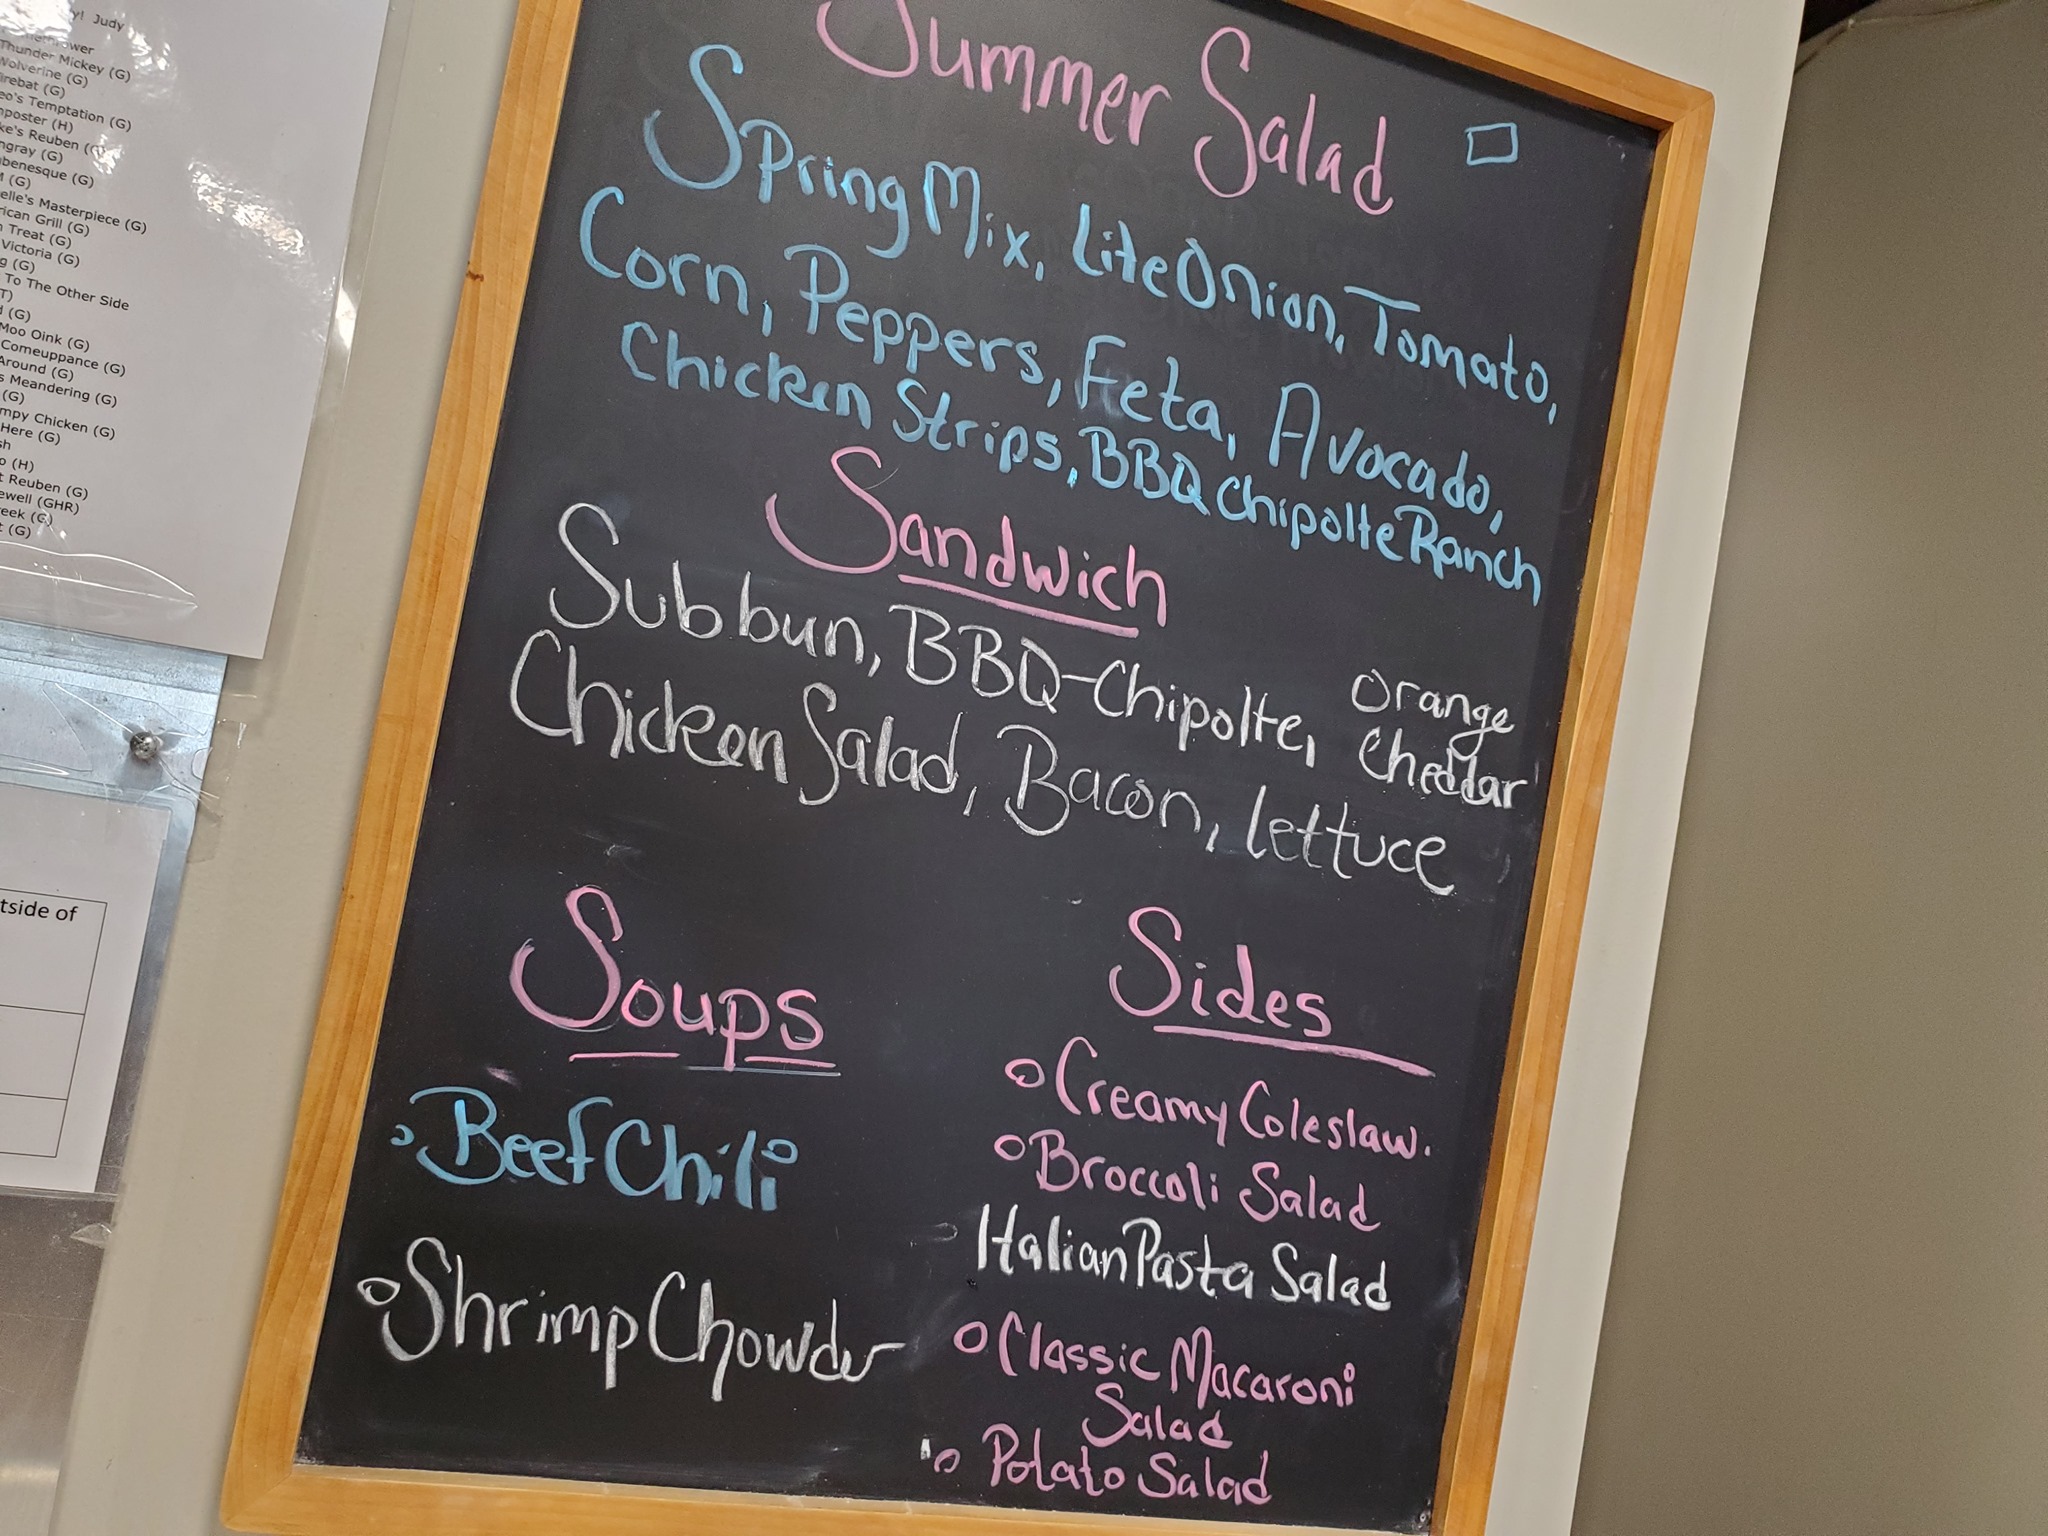 y! Judy
Thunder Mickey (G)
Wolverine (G)
irebat (G)
eo's Temptation (G)
mposter (H)
ke's Reuben (G)
ngray (G)
ubenesque (G)
(G)
elle's Masterpiece (G)
rican Grill (G)
n Treat (G)
Victoria (G)
g (G)
To The Other Side
T)
d (G)
Moo Oink (G)
Comeuppance (G)
Around (G)
s Meandering (G)
(G)
mpy Chicken (G)
Here (G)
sh
o (H)
t Reuben (G)
ewell (GHR)
reek (G)
t (G)
tside of
Summer Salad
Spring Mix, Lite Onion, Tomato,
Corn, Peppers, Feta, Avocado,
Chicken Strips, BBQ Chipolte Ranch
Sandwich
Sub bun, BBQ-Chipolte, Orange Cheddar
Chicken Salad, Bacon, lettuce
Soups
Beef Chili
Shrimp Chowder
Sides
Creamy Coleslaw.
Broccoli Salad
Italian Pasta Salad
Classic Macaroni
Salad
Potato Salad